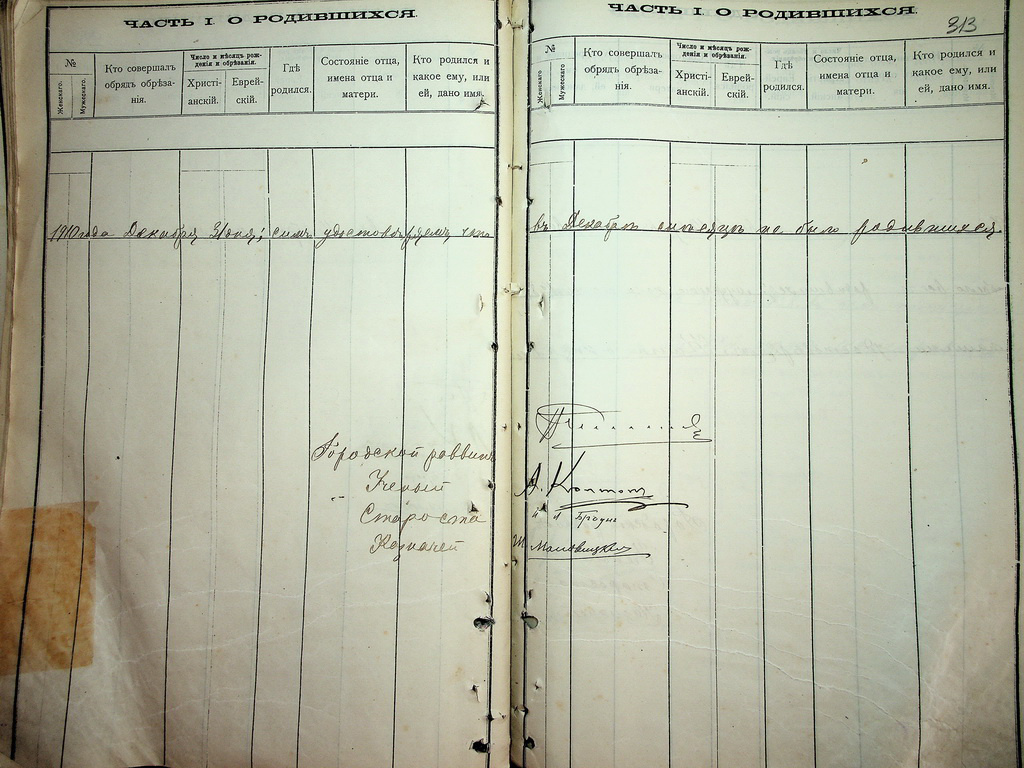 ЧАСТЬ I. О РОДИВШИХСЯ.
№
Женскаго.
Мужескаго.
Кто совершалъ обрядъ обрѣза-
нія.
Число и мѣсяцъ рож-
денія и обрѣзанія.
Христі-
анскій.
Еврей-
скій.
Гдѣ
родился.
Состояніе отца,
имена отца и
матери.
Кто родился и
какое ему, или
ей, дано имя.
ЧАСТЬ I. О РОДИВШИХСЯ.
313
№
Женскаго
Мужескаго
Кто совершалъ
обрядъ обрѣза-
нія.
Число и мѣсяцъ рож-
денія и обрѣзанія.
Христі-
анскій.
Еврей-
скій.
Гдѣ
родился.
Состояніе отца,
имена отца и
матери.
Кто родился и
какое ему, или
ей, дано имя.
1910 года Декабря 31 дня; симъ удостовѣряемъ, что въ Декабрѣ мѣсяцѣ не было родившихся
Городской раввинъ
Ученый
Староста
Казначей